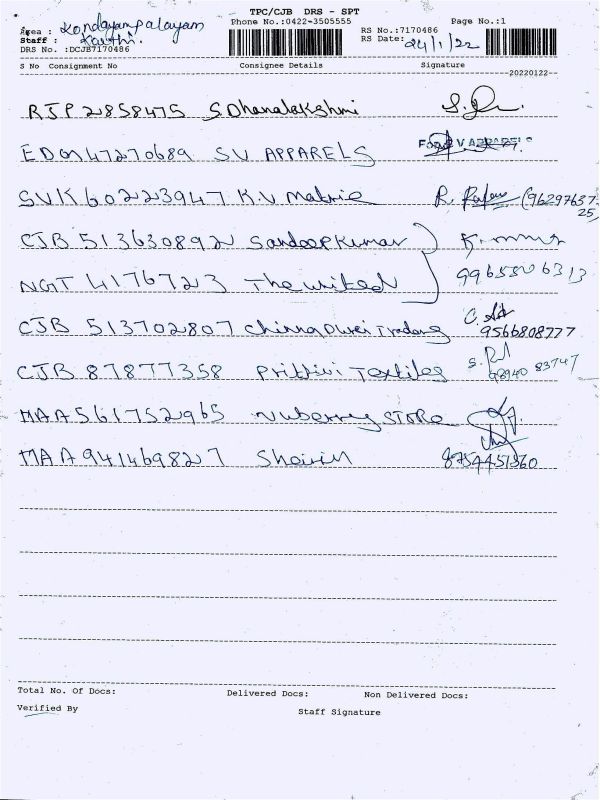 TPC/CJB DRS - SPT
Area : Kondayampalayam Phone No.:0422-3505555 Page No.:1
Staff : RS No.:7170486
DRS No. :DCJB7170486 RS Date: 24/1/22
S No Consignment No Consignee Details Signature
20220122
RJP 2858475 S Dhanalakshmi
EDM47270689 SV APPARELS
SVK60223947 K.V Matric (9629763725)
CJB 513630892 Sandeep Kumar
NGT 4176723 The United 9965506313
CJB 513702807 Chinnadurai Trading 9566808777
CJB 87877358 Prithivi Textiles 98940 83747
MAA561752965 Nuberry STORE
MAA941469827 8754451360
Total No. Of Docs: Delivered Docs: Non Delivered Docs:
Verified By Staff Signature